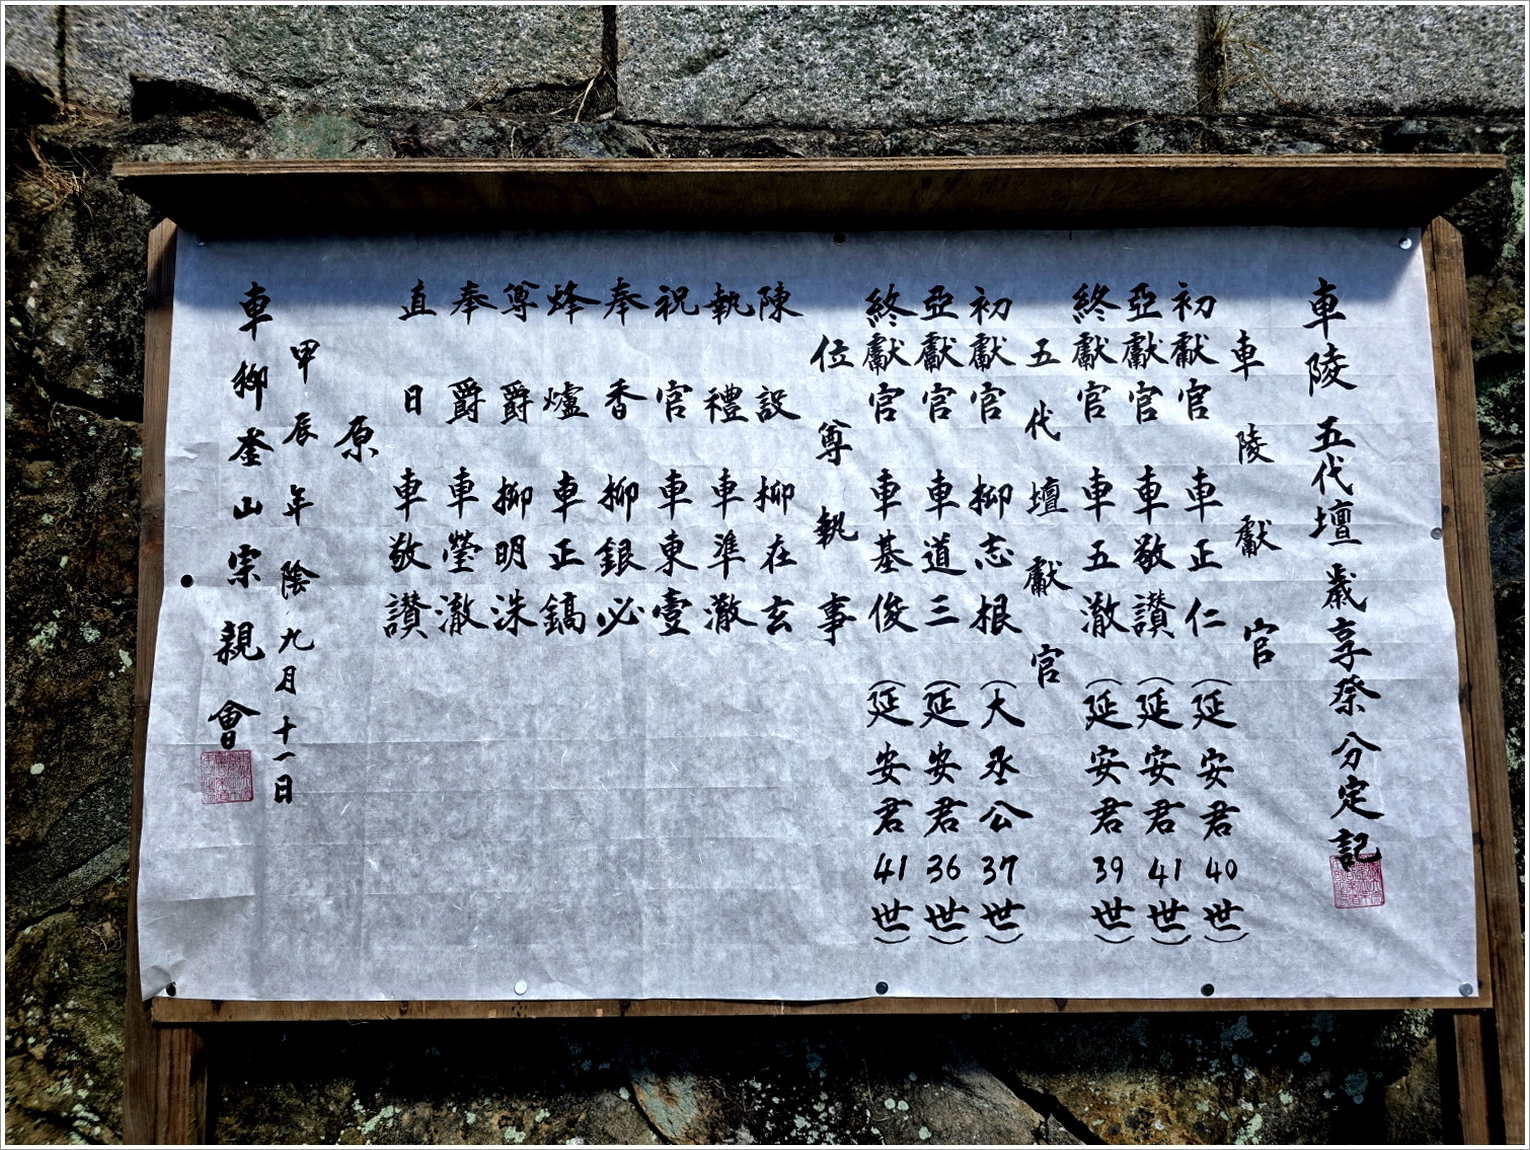 車陵五代壇歲享祭分定記
車陵獻官
初獻官 車正仁 (延安君40世)
亞獻官 車敬讃 (延安君41世)
終獻官 車五澈 (延安君39世)
五代壇獻官
初獻官 柳志根 (大丞公37世)
亞獻官 車道三 (延安君36世)
終獻官 車基俊 (延安君41世)
位尊執事
陳設 柳在玄
執禮 車準澈
祝官 車東壹
奉香 柳銀必
烽爐 車正鎬
尊爵 柳明洙
奉爵 車瑩澈
直日 車敬讃
原
甲辰年陰九月十一日
車柳釜山宗親會